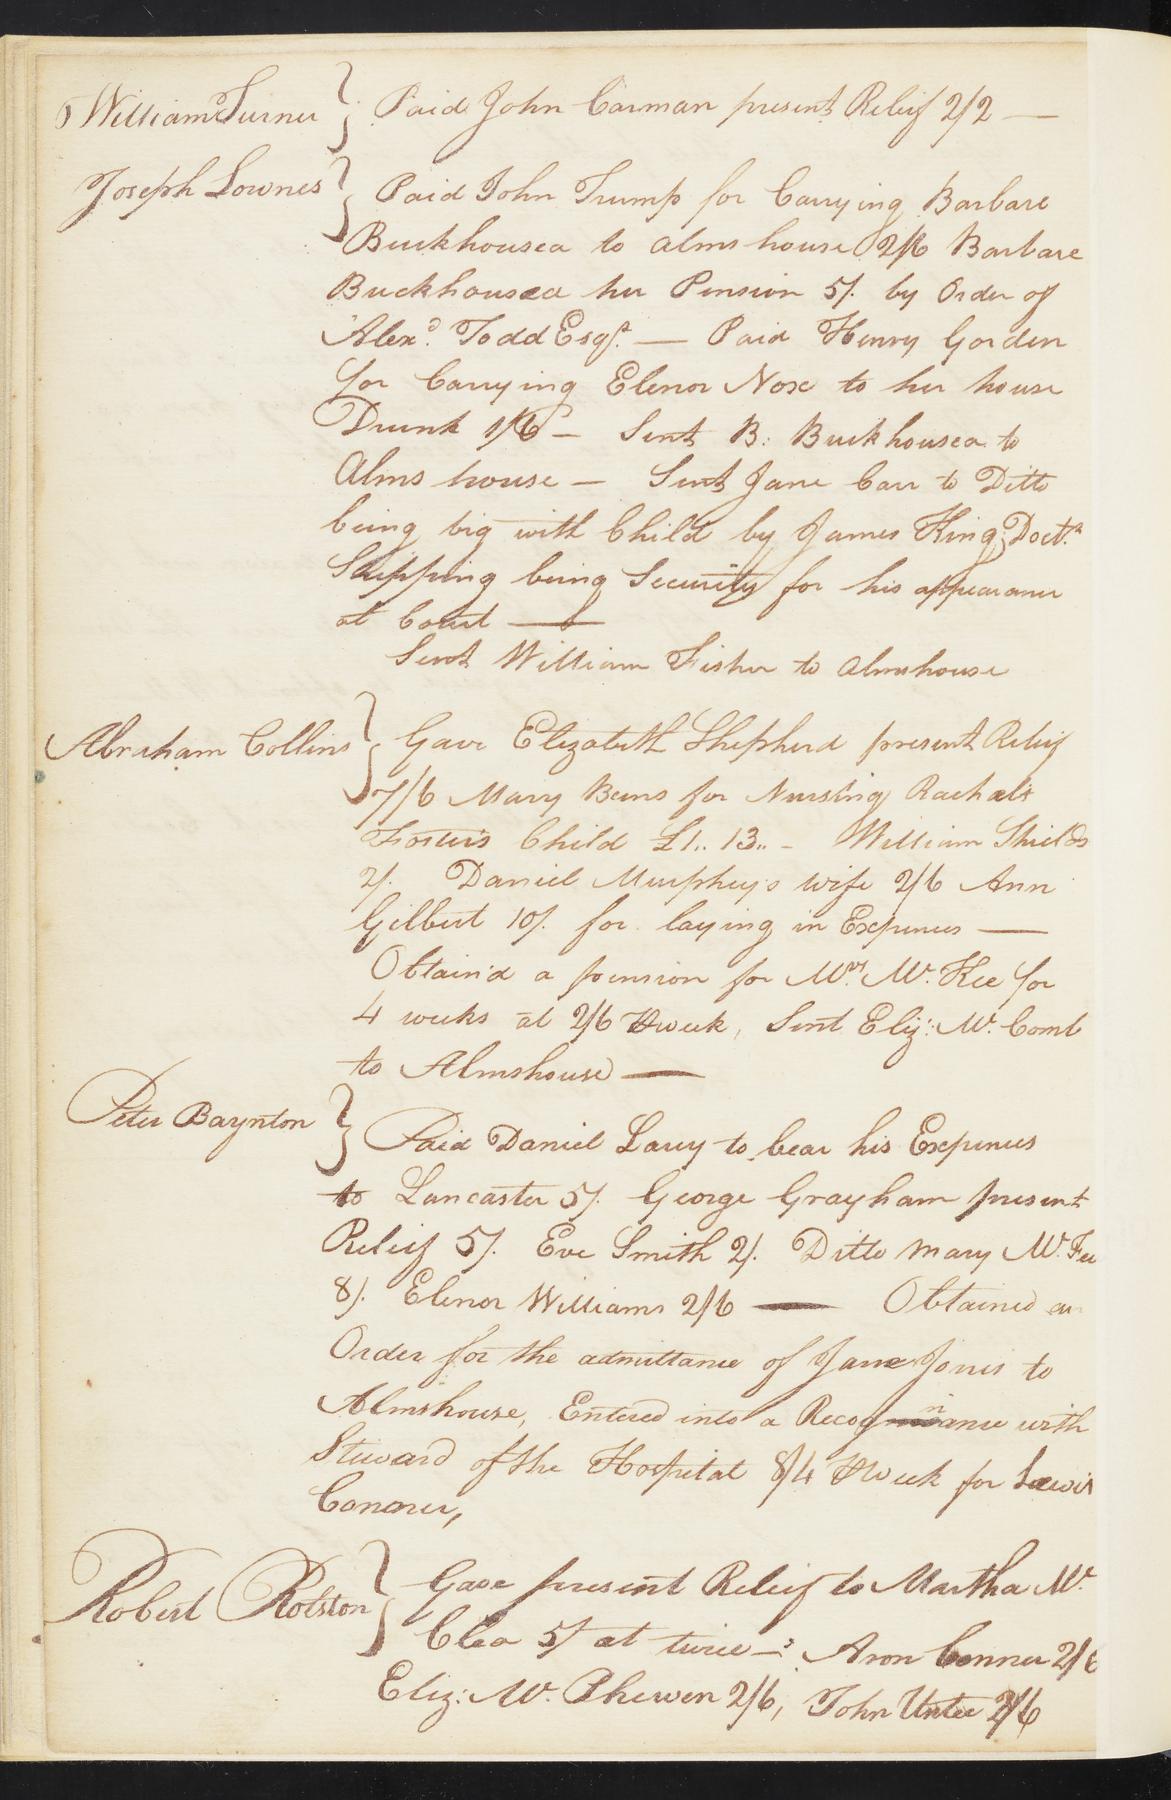 William Turner } Paid John Carman present Relief 2/2 —
Joseph Lownes } Paid John Trump for Carrying Barbare
Buckhousea to alms house 2/6 Barbare
Buckhousea her Pension 5/. by Order of
Alexd. Todd Esqr. — Paid Henry Gorden
for Carrying Elenor Nox to her house
Drunk 1/6 — Sent B: Buckhousea to
Alms house — Sent Jane Carr to Ditto
being big with Child by James King, Doctr.
Shipping being Security for his appearance
at Court —
Sent William Fisher to almshouse
Abraham Collins } Gave Elizabeth Shepherd present Relief
7/6 Mary Beens for Nursing Rachals
Fosters Child £1.. 13.. - William Shields
2/. Daniel Murphey's wife 2/6 Ann
Gilbert 10/. for laying in Expences —
Obtain'd a pension for Mrs. Mc. Kee for
4 weeks at 2/6 ⅌ week, Sent Eliz: Mc. Comb
to Almshouse —
Peter Baynton } Paid Daniel Lary to bear his Expences
to Lancaster 5/. George Grayham present
Relief 5/. Eve Smith 2/. Ditto Mary Mc. Fee
8/. Elenor Williams 2/6 — Obtained an
Order for the admittance of Jane Jones to
Almshouse, Entered into a Recognizance with
Steward of the Hospital 8/4 ⅌ Week for Lewis
Conner,
Robert Rolston } Gave present Relief to Martha Mc.
Clea 5/ at twice —, Aron Conner 2/6
Eliz: Mc. Phewen 2/6, John 2/6